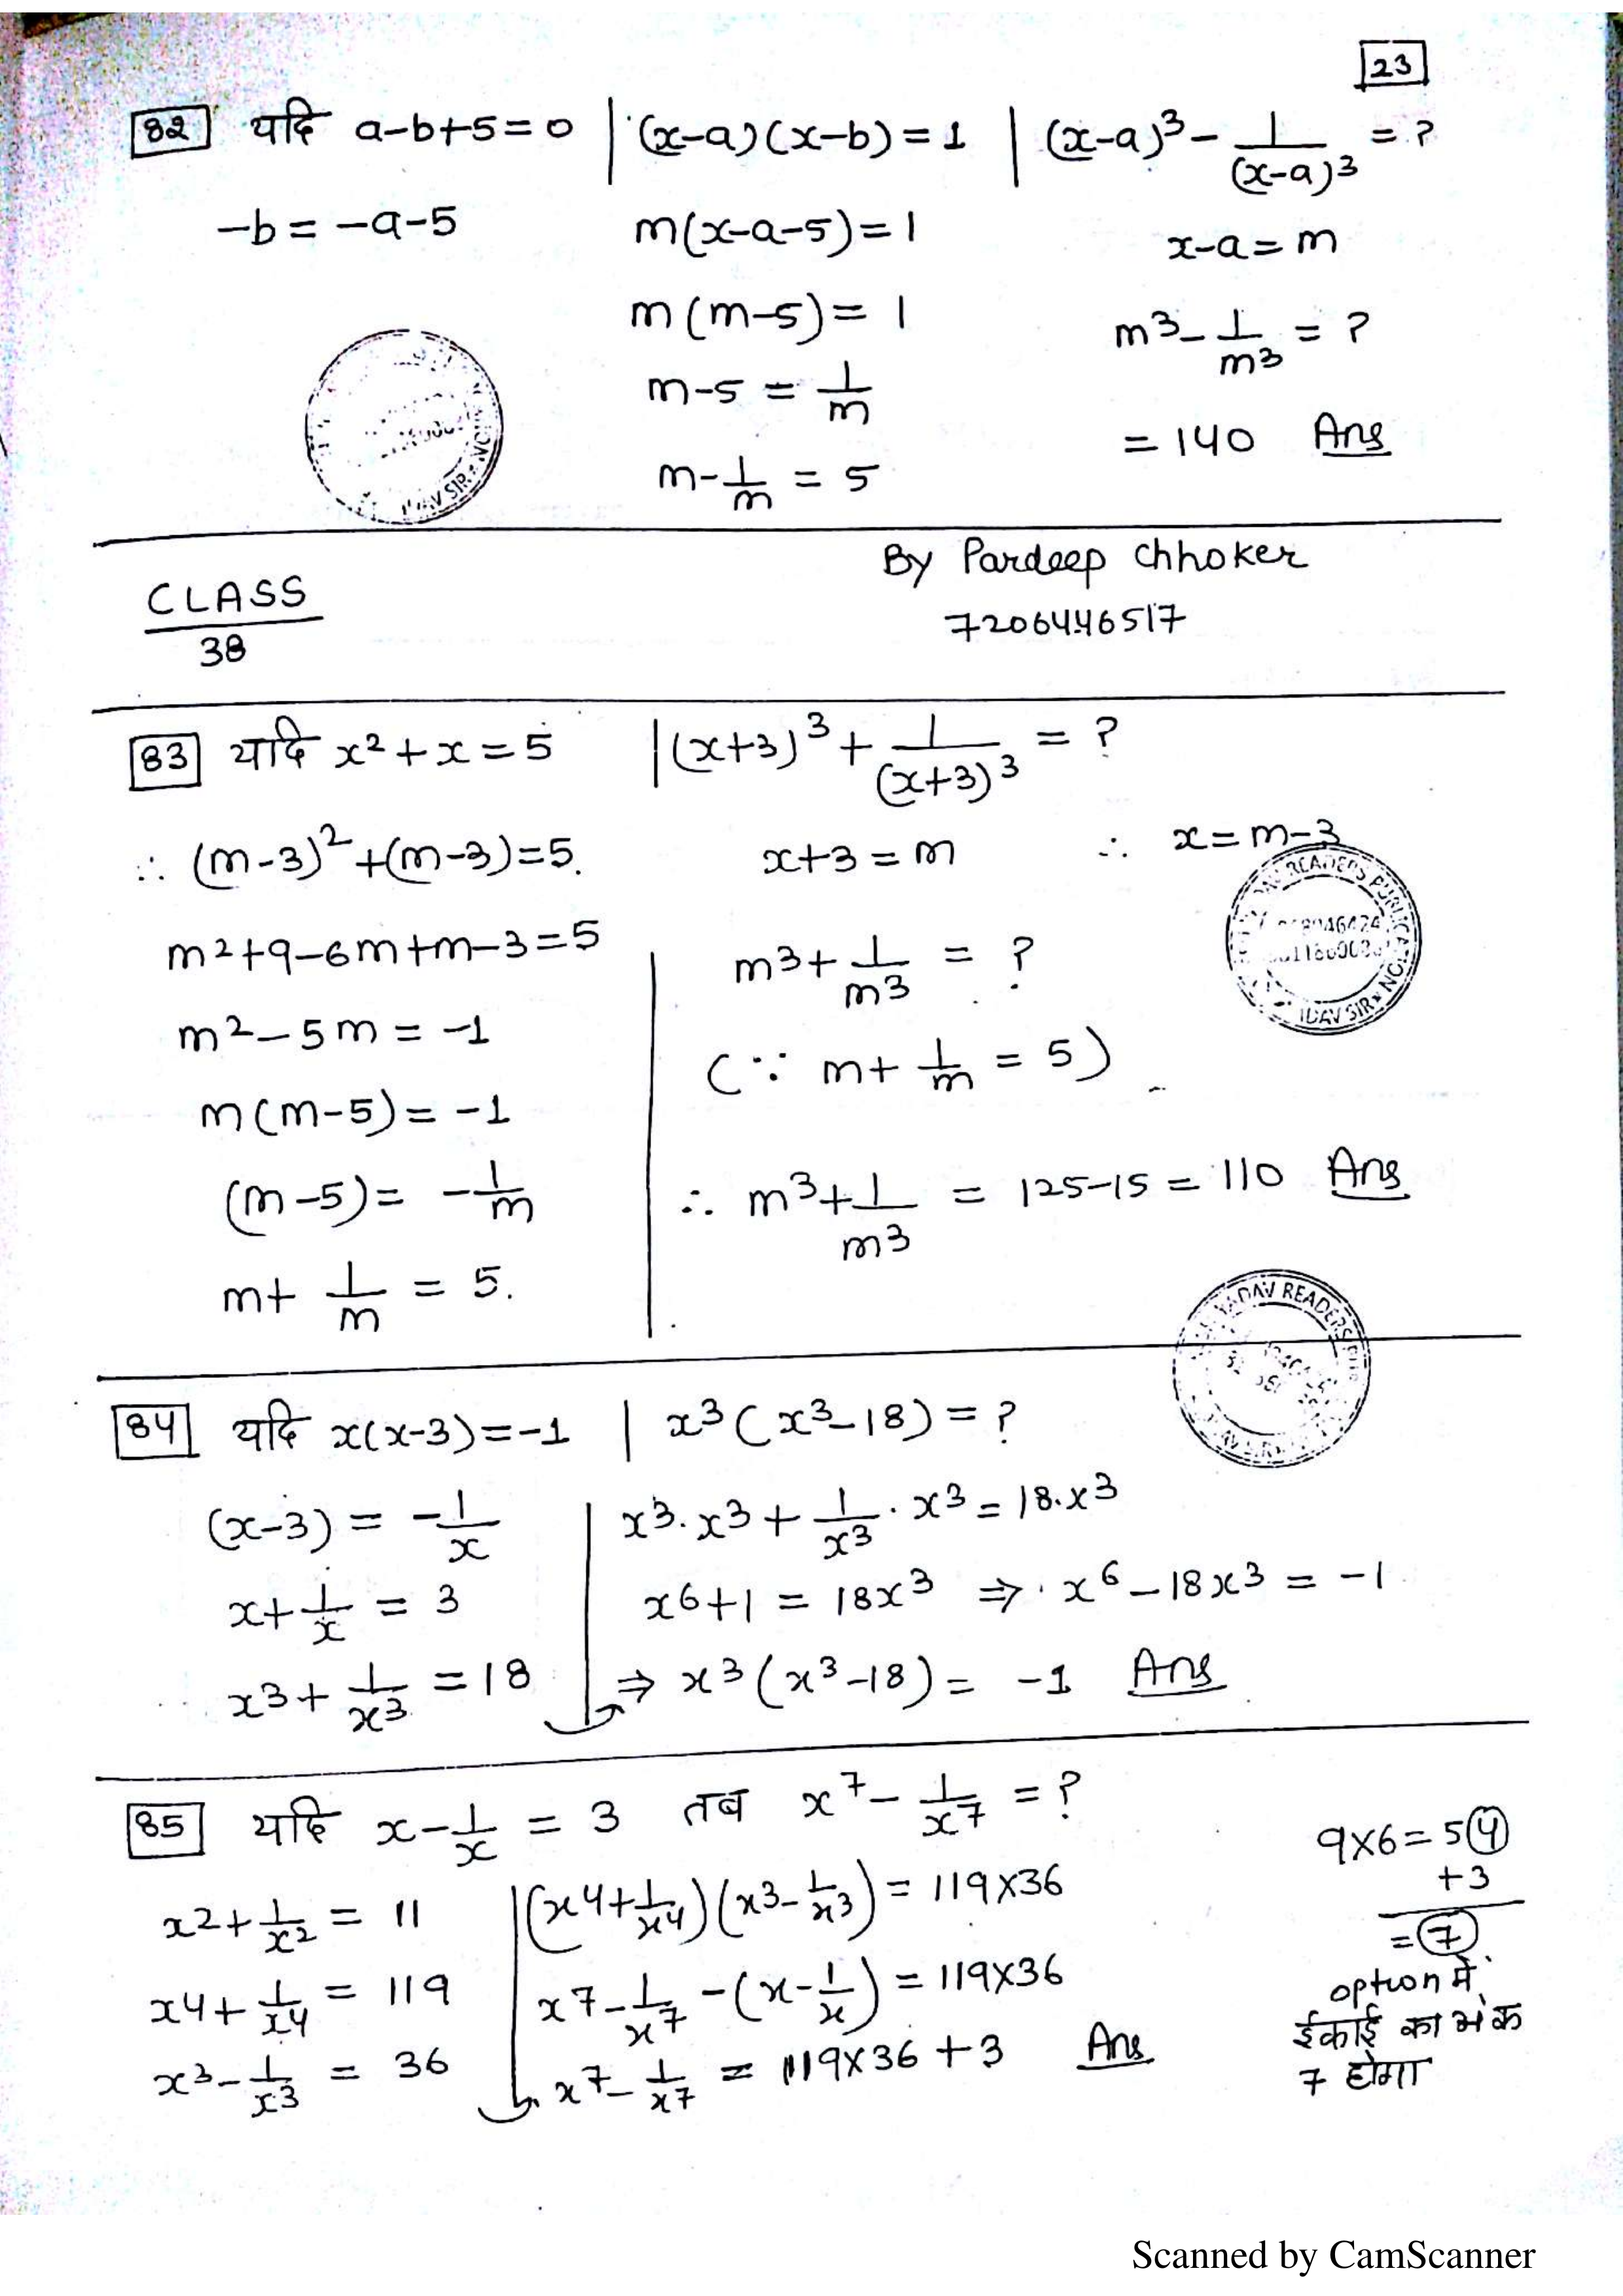 23
82 यदि a-b+5=0 | (x-a)(x-b)=1 | (x-a)³ - 1/(x-a)³ = ?
-b = -a-5
m(x-a-5)=1
x-a=m
m(m-5)=1
m³ - 1/m³ = ?
m-5 = 1/m
= 140 Ans
m - 1/m = 5
By Pardeep Chhoker
7206446517
CLASS
38
83 यदि x²+x=5 | (x+3)³ + 1/(x+3)³ = ?
∴ (m-3)²+(m-3)=5.
x+3=m ∴ x=m-3
m²+9-6m+m-3=5
m³ + 1/m³ = ?
m²-5m = -1
(∵ m + 1/m = 5)
m(m-5) = -1
(m-5) = -1/m
∴ m³ + 1/m³ = 125-15 = 110 Ans
m + 1/m = 5.
YADAV READERS
84 यदि x(x-3)=-1 | x³(x³-18)=?
(x-3) = -1/x
x³·x³ + 1/x³·x³ = 18·x³
x + 1/x = 3
x⁶+1 = 18x³ ⇒ x⁶-18x³ = -1
x³ + 1/x³ = 18
⇒ x³(x³-18) = -1 Ans
85 यदि x - 1/x = 3 तब x⁷ - 1/x⁷ = ?
x² + 1/x² = 11
(x⁴ + 1/x⁴)(x³ - 1/x³) = 119×36
x⁴ + 1/x⁴ = 119
x⁷ - 1/x⁷ - (x - 1/x) = 119×36
x³ - 1/x³ = 36
x⁷ - 1/x⁷ = 119×36+3 Ans
9×6=54
+3
=7
option में
ईकाई का अंक
7 होगा
Scanned by CamScanner